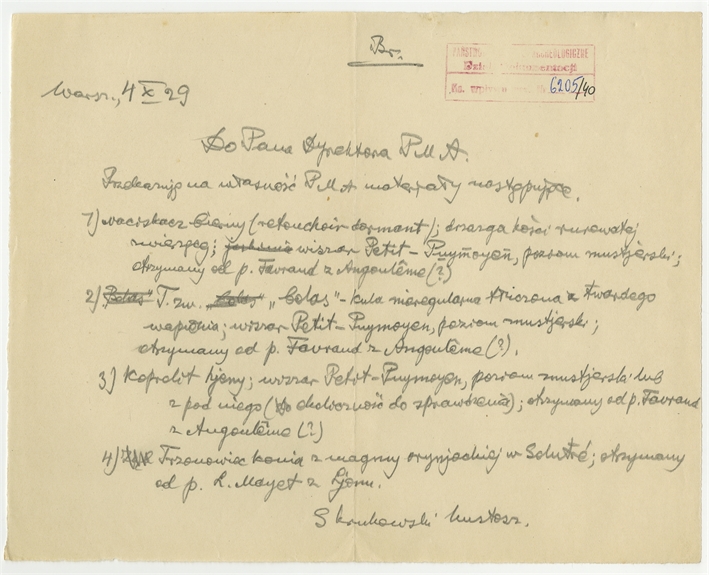 Br.
PAŃSTWOWE ARCHEOLOGICZNE
Dział Dokumentacji
6205/40
Warsz., 4 X 29
Do Pana Dyrektora PMA.
Przekazuję na własność PMA materjały następujące.
1) naciskacz bierny (retouchoir dormant); drzazga kości rurowatej
zwierzęcej; wiszar Petit-Puymoyen, poziom mustjerski;
otrzymany od p. Favraud z Angoulême (?)
2) "Bolas" T. zw. "bolas" - kula nieregularna tłuczona z twardego
wapienia; wiszar Petit-Puymoyen, poziom mustjerski;
otrzymany od p. Favraud z Angoulême (?).
3) Koprolit hjeny; wiszar Petit-Puymoyen, poziom mustjerski lub
z pod niego (ta okoliczność do sprawdzenia); otrzymany od p. Favraud
z Angoulême (?)
4) Trzonowiec konia z magmy orynjackiej w Solutré; otrzymany
od p. L. Mayet z Ljonu.
S Krukowski kustosz.